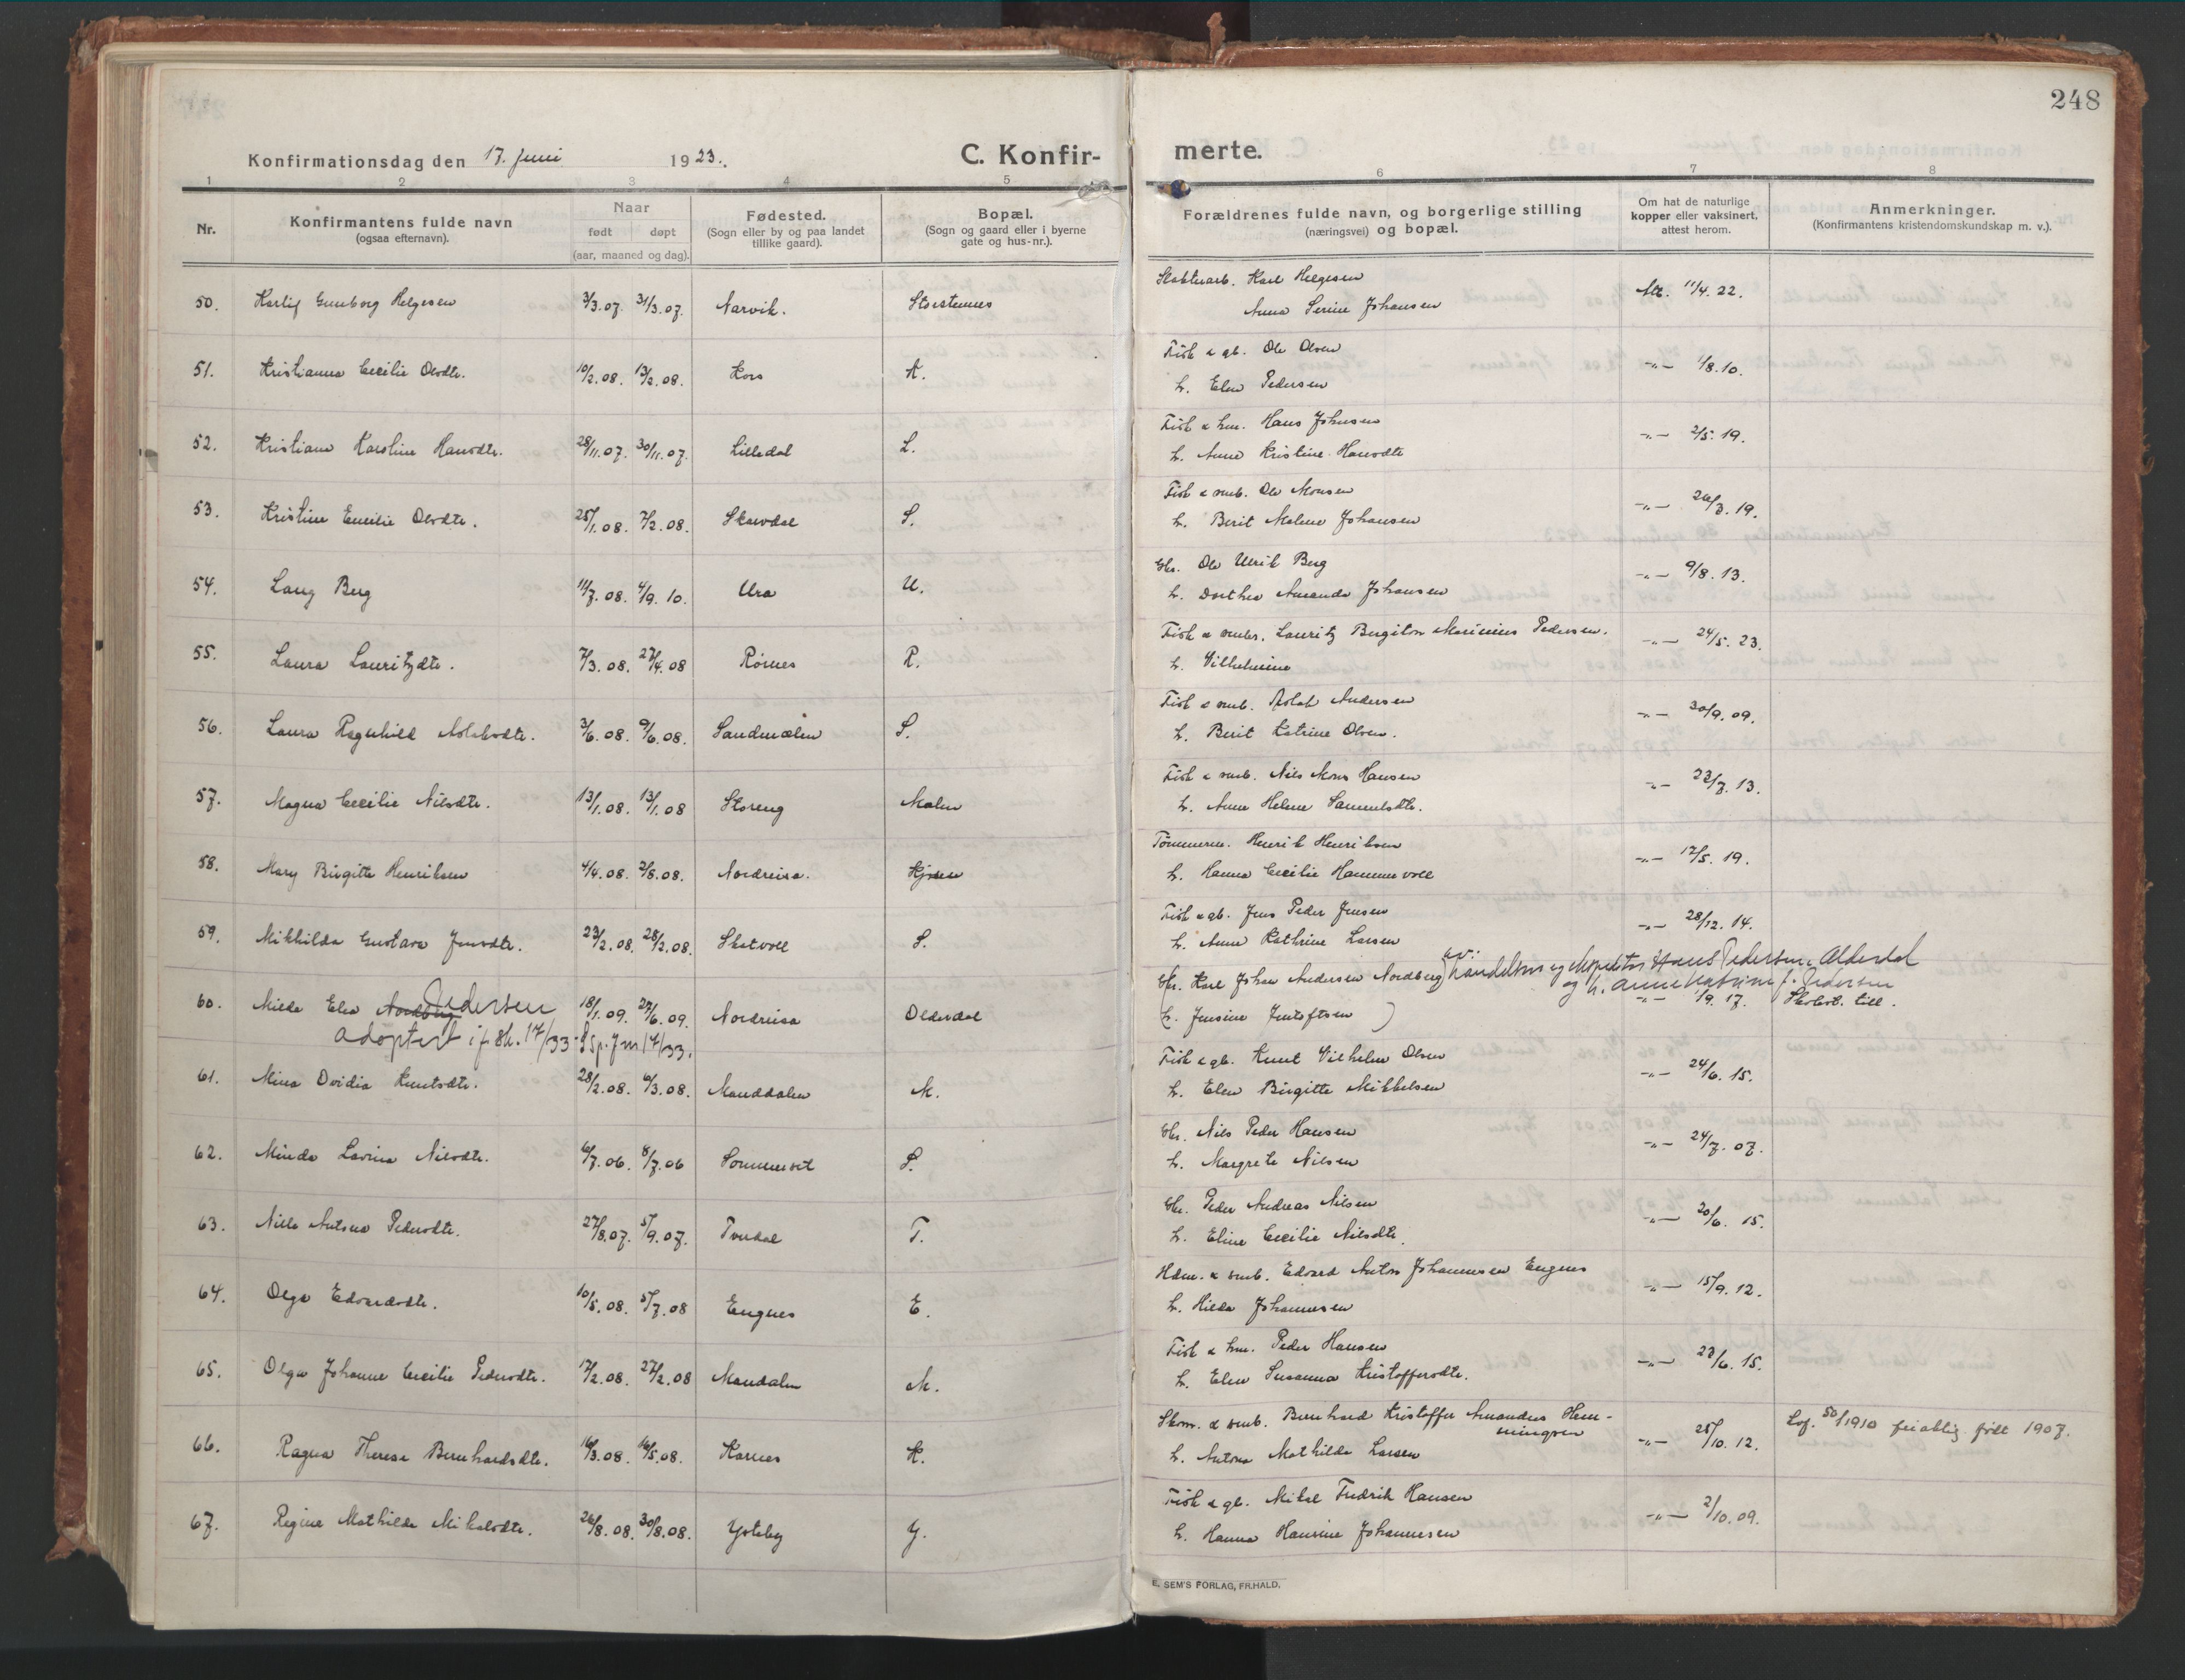 248
Konfirmationsdag den 17. Juni 1923.
C. Konfir-
merte.
1 2 3 4 5 6 7 8
Nr.
Konfirmantens fulde navn
(ogsaa efternavn).
Naar
født døpt
(aar, maaned og dag).
Fødested.
(Sogn eller by og paa landet
tillike gaard).
Bopæl.
(Sogn og gaard eller i byerne
gate og hus-nr.).
Forældrenes fulde navn, og borgerlige stilling
(næringsvei) og bopæl.
Om hat de naturlige
kopper eller vaksinert,
attest herom.
Anmerkninger.
(Konfirmantens kristendomskundskap m. v.).
50. Gunborg Helgesen 3/3.07. 31/3.07. Narvik. Storstennes Karl Helgesen Att. 11/4. 22.
Anna Serine Johansen
51. Kristianna Cecilie Olsdtr. 10/2.08. 13/2.08. Kors K. Fisk & gb. Ole Olsen -"- 1/8.10.
h. Elen Pedersen
52. Kristiane Karoline Hansdtr. 28/11.07. 30/11.07. Lilledal L. Fisk & hm. Hans Johnsen -"- 2/5.19.
h. Anne Kristine Hansdtr
53. Kristine Emilie Olsdtr. 25/1.08. 7/2.08. Skardal S. Fisk & smb. Ole Monsen -"- 26/3.19.
h. Berit Malene Johansen
54. Lany Berg 11/7.08. 4/9.10. Ura U. Gbr. Ole Ulrik Berg -"- 9/8.13.
h. Dorthea Amanda Johansen
55. Laura Lauritzdtr. 7/3.08. 27/4.08 Rörnes R. Fisk & smbr. Lauritz Birgiton Marinius Pedersen. -"- 24/5.23.
h. Vilhelmine
56. Laura Ragnhild Aslaksdtr. 3/6.08. 9/6.08. Sandmælen S. Fisk & smb. Aslak Andersen -"- 30/9.09.
h. Berit Katrine Olsen.
57. Magna Cecilie Nilsdtr. 13/1.08. 13/1.08 Storeng Malen Fisk & smb. Nils Mons Hansen -"- 23/7.13.
h. Anne Helene Samuelsdtr.
58. Mary Birgitte Henriksen 4/4.08. 2/8.08. Nordreisa. Kjosen Tømmerm. Henrik Henriksen -"- 17/5.19.
h. Hanna Cecilie Hammervoll
59. Mikhilda Gustava Jensdtr. 23/2.08. 28/2.08. Skatvoll S. Fisk & gb. Jens Peder Jensen -"- 28/12.14.
h. Anne Kathrine Larsen
60. Milda Elen Nordberg Pedersen 18/1.09. 27/6.09. Nordreisa Olderdal (Gbr. Karl Johan Andersen Nordberg av: handelsm og ekspeditør Hans Pedersen, Olderdal
og h. Anne Katrine f. Pedersen
(h. Jensine Jentoftsen ) -"- 1/9.17. Skolest. till.
adoptert i f. sk. 17/33
61. Mina Ovidia Knutsdtr. 28/2.08. 6/3.08. Manddalen M. Fisk & gb. Knut Vilhelm Olsen -"- 24/6.15.
h. Elen Birgitte Mikkelsen
62. Minda Lavina Nilsdtr. 6/7.06. 8/7.06 Sommerset S. Gbr. Nils Peder Hansen -"- 24/7.07.
h. Margrete Nilsen
63. Nille Pedersdtr. 27/8.07. 5/9.07. Tverdal T. Gbr. Peder Andreas Nilsen -"- 20/6.15.
h. Eline Cecilie Nilsdtr.
64. Olga Edvardsdtr. 10/5.08. 5/7.08 Engnes E. Hdm. & smb. Edvard Anton Johannesen Engnes -"- 15/9.12.
h. Hilda Johannesen
65. Olga Johanne Cecilie Pedersdtr. 17/2.08. 27/2.08 Mandalen M. Fisk & hm. Peder Hansen -"- 23/6.15.
h. Elen Susanna Kristoffersdtr.
66. Ragna Therese Bernhardsdtr. 16/3.08. 16/5.08. Karnes K. Skom. & smb. Bernhard Kristoffer Amandus Hem-
mingsen -"- 25/10.12. Lof. 50/1910 feiaktig født 1907.
h. Antona Mathilde Larsen
67. Regine Mathilde Mikalsdtr. 26/8.08. 30/8.08. Ysteby Y. Fisk & gb. Mikal Fredrik Hansen -"- 2/10.09.
h. Hanna Hansine Johannesen
E. SEM'S FORLAG, FR.HALD.